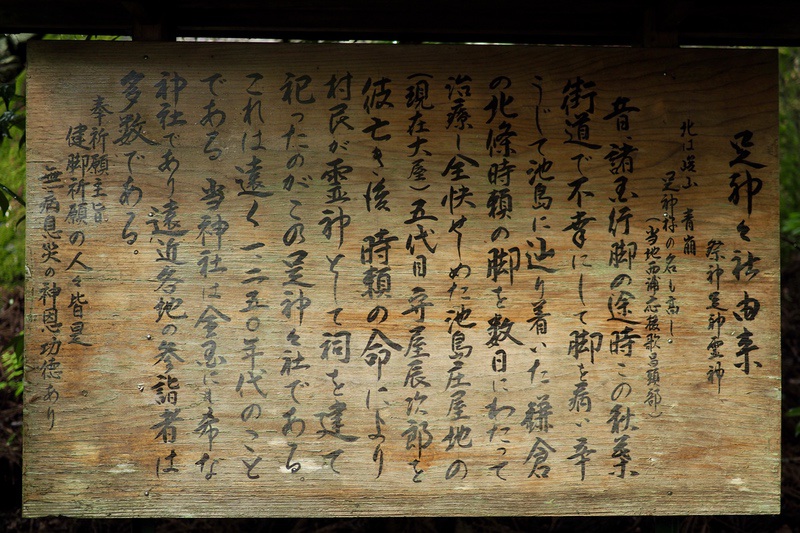 足神々社由来
祭神足神霊神
北は嶮山 青崩
足神様の名も高し
(当地西浦念仏歌呂頭部)
昔諸国行脚の途時この秋葉
街道で不幸にして脚を病い辛
うじて池島に辿り着いた鎌倉
の北條時頼の脚を数日にわたって
治療し全快せしめた池島庄屋地の
(現在大屋)五代目守屋辰次郎を
彼亡き後 時頼の命により
村民が霊神として祠を建て
祀ったのがこの足神々社である。
これは遠く一、二五〇年代のこと
である 当神社は全国にも希な
神社であり遠近各地の参詣者は
多数である。
奉祈願主旨
健脚祈願の人々皆是
無病息災の神恩功徳あり